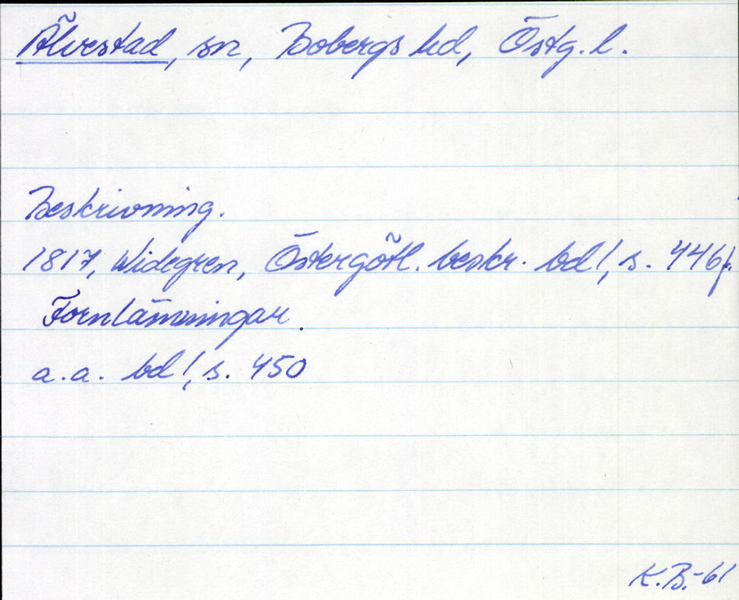 Älvestad, sn, Bobergs hd, Östg. l.
Beskrivning.
1817, Widegren, Östergötl. beskr. bd 1, s. 446f.
Fornlämningar.
a.a. bd 1, s. 450
K.B.-61